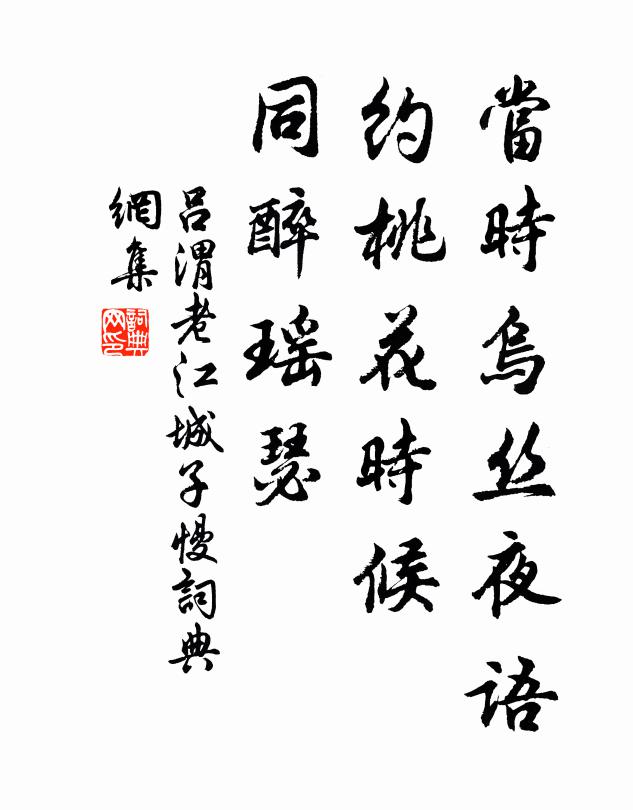 當時烏丝夜語
約桃花時候
同醉瑶瑟
吕渭老江城子慢詞典
網集
詞典網印